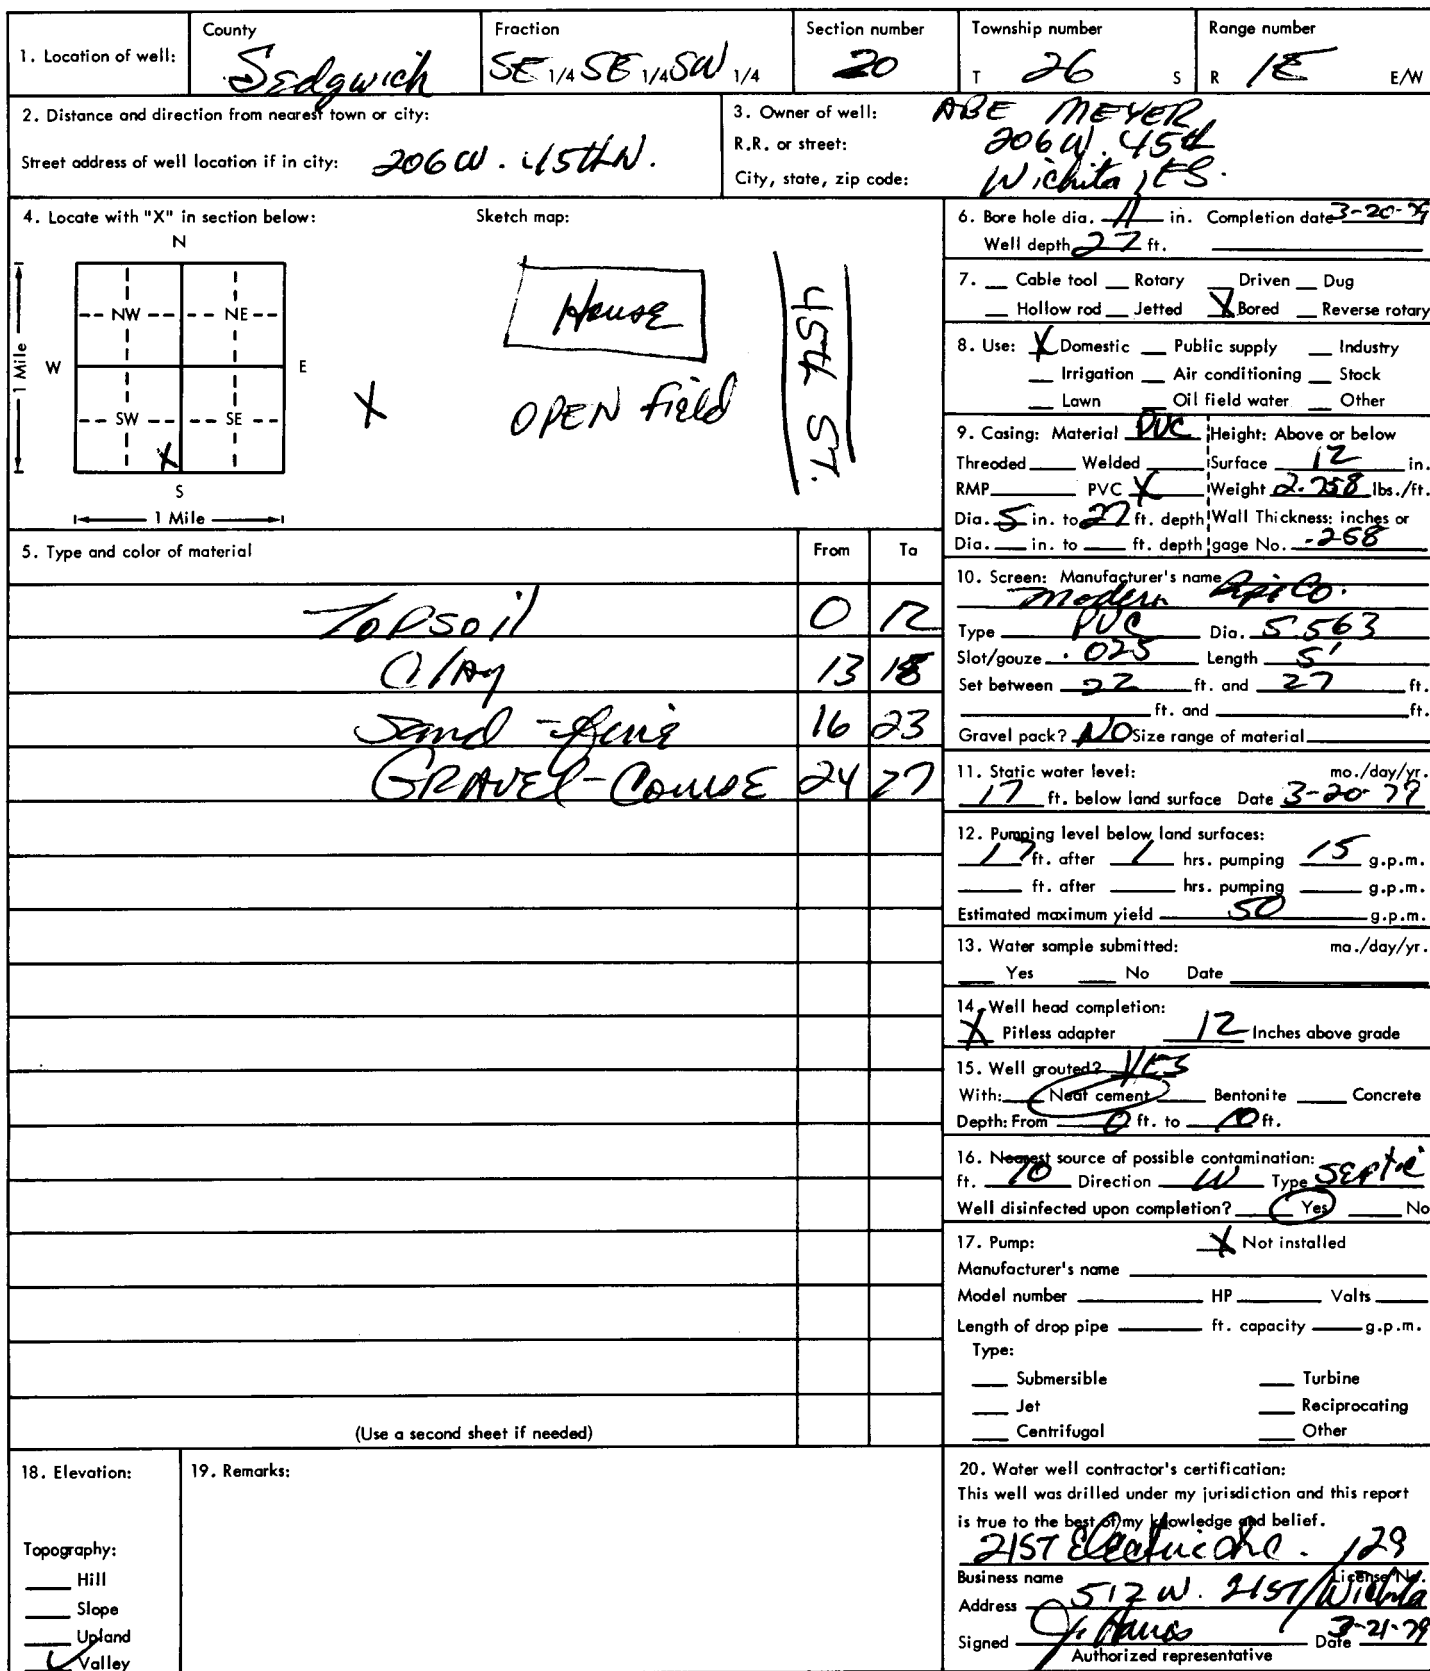 1. Location of well:
County
Sedgwich
Fraction
SE 1/4 SE 1/4 SW 1/4
Section number
20
Township number
T 26 S
Range number
R 1E E/W
2. Distance and direction from nearest town or city:
Street address of well location if in city: 206 W. 45th N.
3. Owner of well: ABE MEYER
R.R. or street: 206 W. 45th
City, state, zip code: Wichita, KS.
4. Locate with "X" in section below:
N
NW NE
W E
SW SE
X
S
1 Mile
1 Mile
Sketch map:
House
X
OPEN field
45th ST.
5. Type and color of material From To
Topsoil 0 12
Clay 13 18
Sand - fine 16 23
GRAVEL - Course 24 27
(Use a second sheet if needed)
6. Bore hole dia. 11 in. Completion date 3-20-79
Well depth 27 ft.
7. Cable tool Rotary Driven Dug
Hollow rod Jetted X Bored Reverse rotary
8. Use: X Domestic Public supply Industry
Irrigation Air conditioning Stock
Lawn Oil field water Other
9. Casing: Material PVC Height: Above or below
Threaded Welded Surface 12 in.
RMP PVC X Weight 2.758 lbs./ft.
Dia. 5 in. to 27 ft. depth Wall Thickness: inches or
Dia. in. to ft. depth gage No. .258
10. Screen: Manufacturer's name
Modern Co.
Type PVC Dia. 5.563
Slot/gauze .025 Length 5'
Set between 22 ft. and 27 ft.
ft. and ft.
Gravel pack? NO Size range of material
11. Static water level: mo./day/yr.
17 ft. below land surface Date 3-20-79
12. Pumping level below land surfaces:
17 ft. after 1 hrs. pumping 15 g.p.m.
ft. after hrs. pumping g.p.m.
Estimated maximum yield 50 g.p.m.
13. Water sample submitted: mo./day/yr.
Yes No Date
14. Well head completion:
X Pitless adapter 12 Inches above grade
15. Well grouted? YES
With: Neat cement Bentonite Concrete
Depth: From 0 ft. to 10 ft.
16. Nearest source of possible contamination:
ft. 70 Direction W Type Septic
Well disinfected upon completion? Yes No
17. Pump: X Not installed
Manufacturer's name
Model number HP Volts
Length of drop pipe ft. capacity g.p.m.
Type:
Submersible Turbine
Jet Reciprocating
Centrifugal Other
18. Elevation:
Topography:
Hill
Slope
Upland
Valley
19. Remarks:
20. Water well contractor's certification:
This well was drilled under my jurisdiction and this report
is true to the best of my knowledge and belief.
21ST Electric Inc. 129
Business name License No.
Address 512 W. 21ST / Wichita
Signed Date 3-21-79
Authorized representative